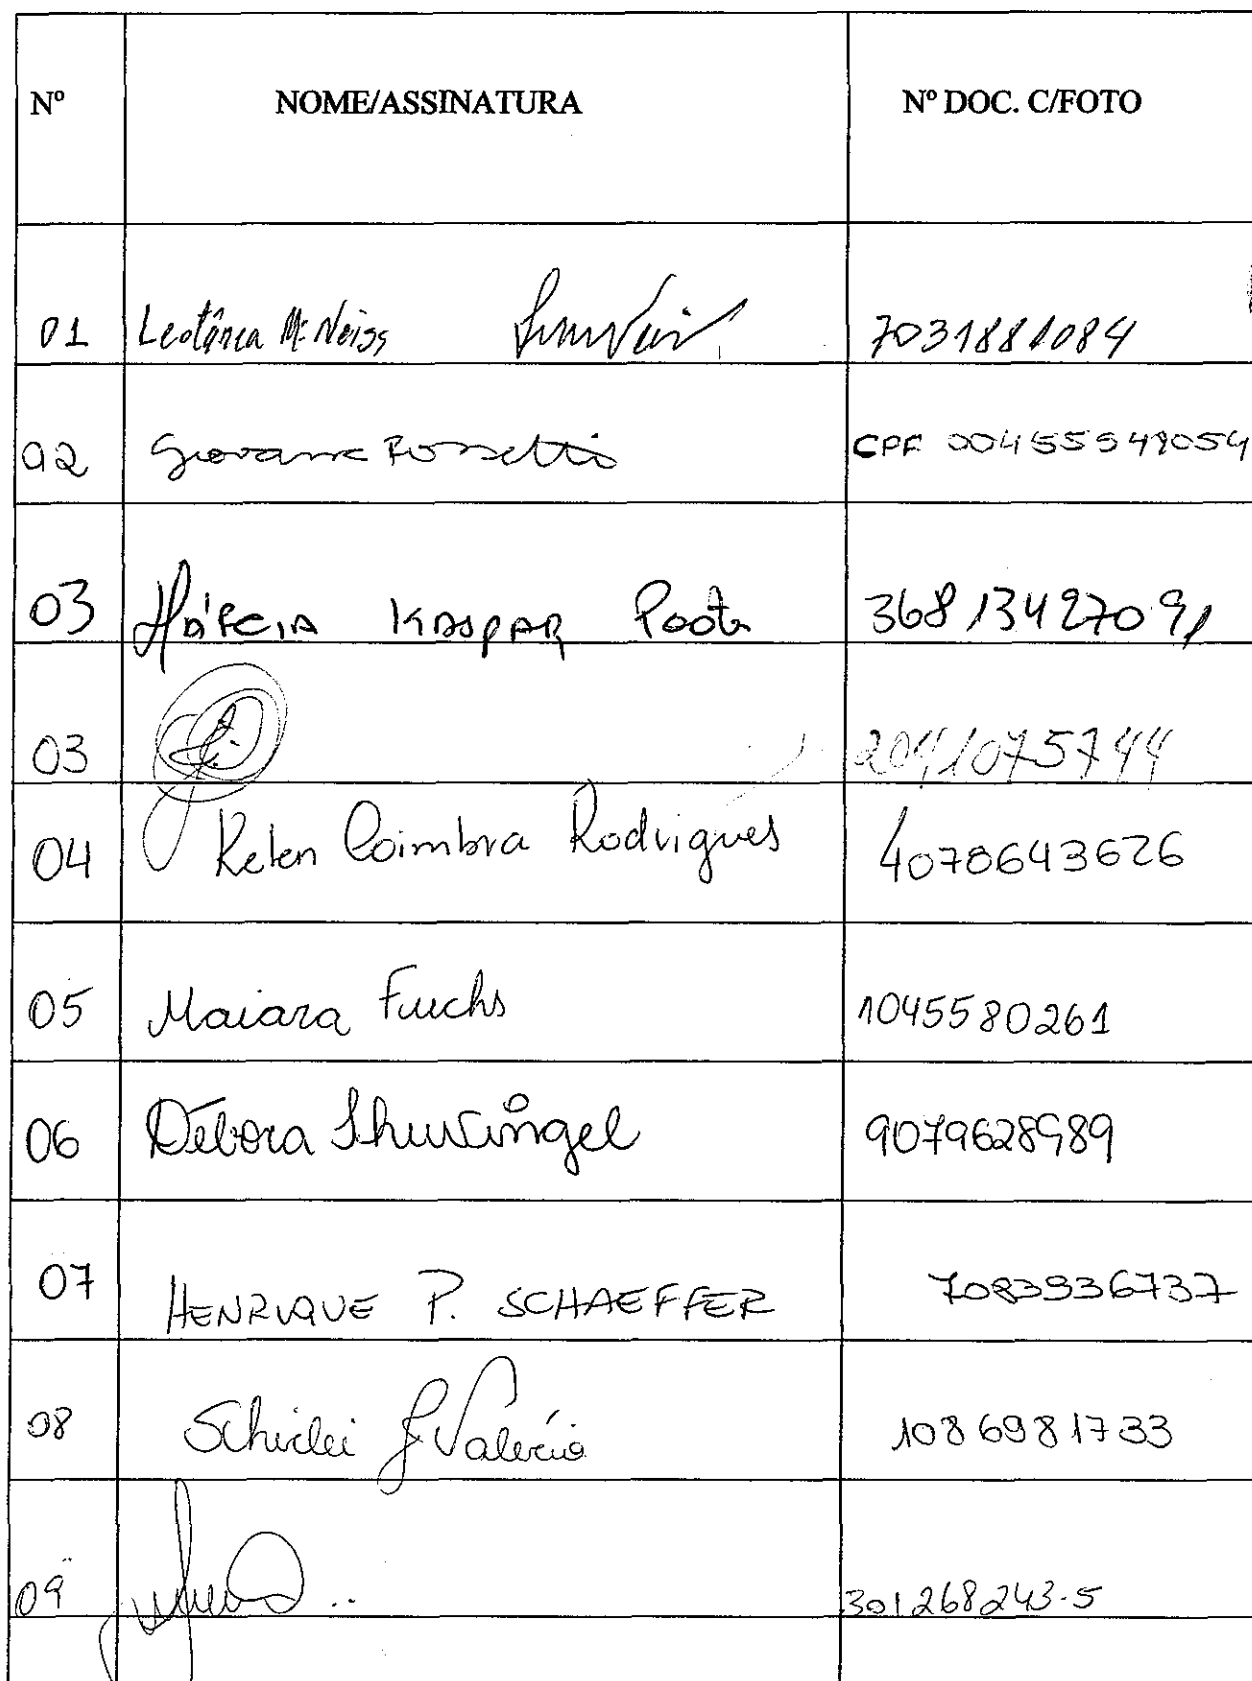 Nº NOME/ASSINATURA Nº DOC. C/FOTO
01 Leotânea M. Neiss 7031881084
02 Giovana Rossetti CPF 00455549054
03 Márcia KASPAR Poota 36813427091
03 2041075744
04 Kelen Coimbra Rodrigues 4078643626
05 Maiara Fuchs 1045580261
06 Débora 9079628989
07 HENRIQUE P. SCHAEFFER 7083936737
08 Schirlei J Valério 1086981733
09 301268243-5